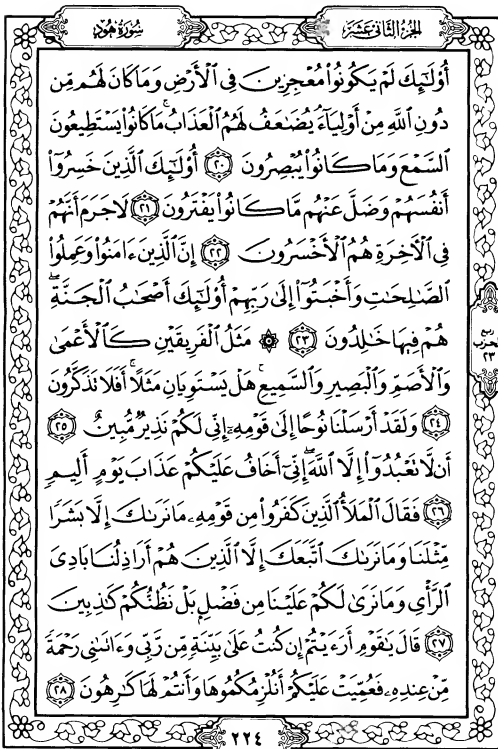 الجزء الثاني عشر
سورة هود
أُو۟لَٰٓئِكَ لَمْ يَكُونُوا۟ مُعْجِزِينَ فِى ٱلْأَرْضِ وَمَا كَانَ لَهُم مِّن
دُونِ ٱللَّهِ مِنْ أَوْلِيَآءَ ۘ يُضَٰعَفُ لَهُمُ ٱلْعَذَابُ ۚ مَا كَانُوا۟ يَسْتَطِيعُونَ
ٱلسَّمْعَ وَمَا كَانُوا۟ يُبْصِرُونَ ٢٠ أُو۟لَٰٓئِكَ ٱلَّذِينَ خَسِرُوٓا۟
أَنفُسَهُمْ وَضَلَّ عَنْهُم مَّا كَانُوا۟ يَفْتَرُونَ ٢١ لَا جَرَمَ أَنَّهُمْ
فِى ٱلْءَاخِرَةِ هُمُ ٱلْأَخْسَرُونَ ٢٢ إِنَّ ٱلَّذِينَ ءَامَنُوا۟ وَعَمِلُوا۟
ٱلصَّٰلِحَٰتِ وَأَخْبَتُوٓا۟ إِلَىٰ رَبِّهِمْ أُو۟لَٰٓئِكَ أَصْحَٰبُ ٱلْجَنَّةِ ۖ
هُمْ فِيهَا خَٰلِدُونَ ٢٣ ۞ مَثَلُ ٱلْفَرِيقَيْنِ كَٱلْأَعْمَىٰ
وَٱلْأَصَمِّ وَٱلْبَصِيرِ وَٱلسَّمِيعِ ۚ هَلْ يَسْتَوِيَانِ مَثَلًا ۚ أَفَلَا تَذَكَّرُونَ
٢٤ وَلَقَدْ أَرْسَلْنَا نُوحًا إِلَىٰ قَوْمِهِۦٓ إِنِّى لَكُمْ نَذِيرٌ مُّبِينٌ ٢٥
أَن لَّا تَعْبُدُوٓا۟ إِلَّا ٱللَّهَ ۖ إِنِّىٓ أَخَافُ عَلَيْكُمْ عَذَابَ يَوْمٍ أَلِيمٍ
٢٦ فَقَالَ ٱلْمَلَأُ ٱلَّذِينَ كَفَرُوا۟ مِن قَوْمِهِۦ مَا نَرَىٰكَ إِلَّا بَشَرًا
مِّثْلَنَا وَمَا نَرَىٰكَ ٱتَّبَعَكَ إِلَّا ٱلَّذِينَ هُمْ أَرَاذِلُنَا بَادِىَ
ٱلرَّأْىِ وَمَا نَرَىٰ لَكُمْ عَلَيْنَا مِن فَضْلٍۭ بَلْ نَظُنُّكُمْ كَٰذِبِينَ
٢٧ قَالَ يَٰقَوْمِ أَرَءَيْتُمْ إِن كُنتُ عَلَىٰ بَيِّنَةٍ مِّن رَّبِّى وَءَاتَىٰنِى رَحْمَةً
مِّنْ عِندِهِۦ فَعُمِّيَتْ عَلَيْكُمْ أَنُلْزِمُكُمُوهَا وَأَنتُمْ لَهَا كَٰرِهُونَ ٢٨
ربع
الحزب
٢٣
٢٢٤